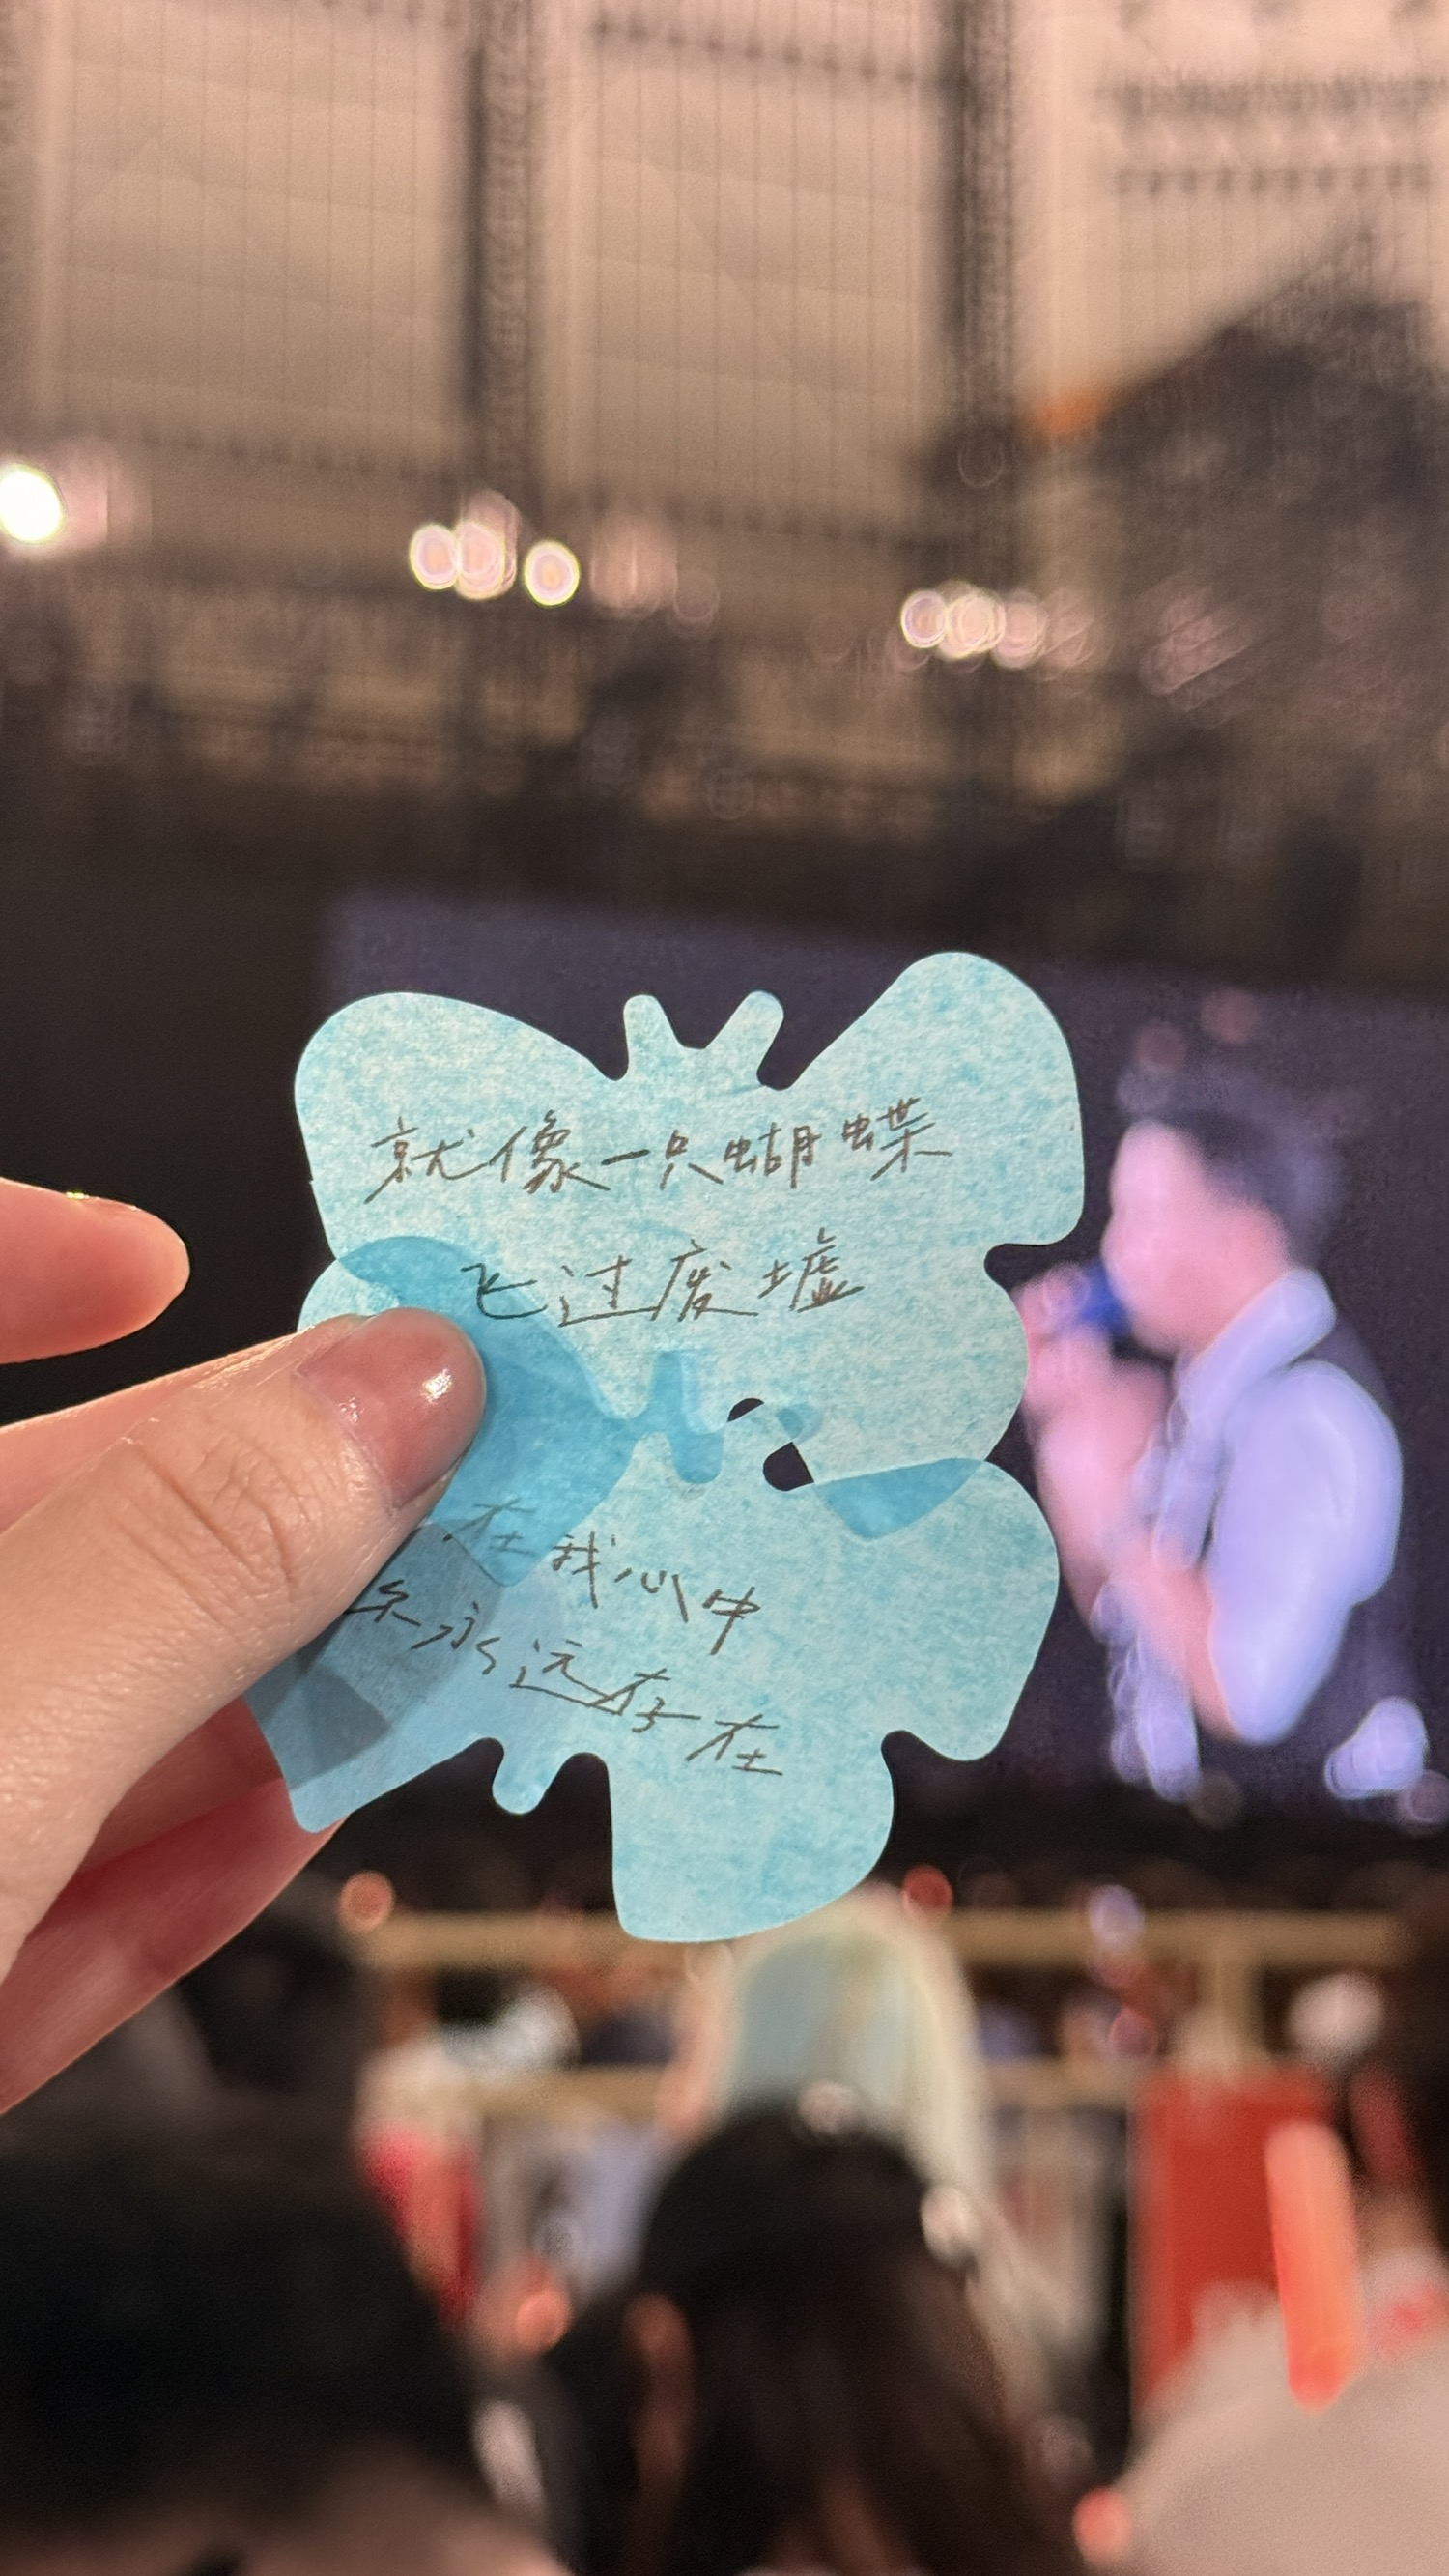 就像一只蝴蝶
飞过废墟
在我心中
永远存在